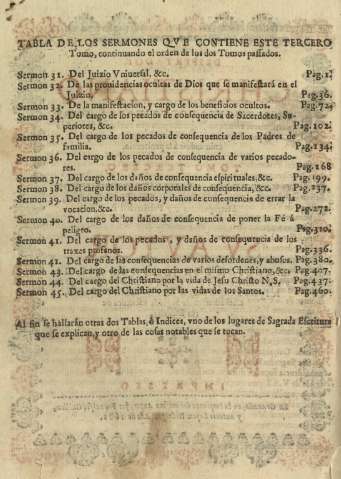 TABLA DE LOS SERMONES QVE CONTIENE ESTE TERCERO
Tomo, continuando el orden de los dos Tomos passados.
Sermon 31. Del Juizio Vniversal, &c. Pag. 1.
Sermon 32. De las providencias ocultas de Dios que se manifestará en el
Juizio. Pag. 36.
Sermon 33. De la manifestacion, y cargo de los beneficios ocultos. Pag. 72.
Sermon 34. Del cargo de los pecados de consequencia de Sacerdotes, Su-
periores, &c. Pag. 102.
Sermon 35. Del cargo de los pecados de consequencia de los Padres de
familia. Pag. 134.
Sermon 36. Del cargo de los pecados de consequencia de varios pecado-
res. Pag. 168
Sermon 37. Del cargo de los daños de consequencia espirituales, &c. Pag. 199.
Sermon 38. Del cargo de daños corporales de consequencia, &c. Pag. 237.
Sermon 39. Del cargo de los pecados, y daños de consequencia de errar la
vocacion, &c. Pag. 272.
Sermon 40. Del cargo de los daños de consequencia de poner la Fé á
peligro. Pag. 310.
Sermon 41. Del cargo de los pecados, y daños de consequencia de los
traxes profanos. Pag. 336.
Sermon 42. Del cargo de las consequencias de varios desordenes, y abusos. Pag. 380.
Sermon 43. Del cargo de las consequencias en el mismo Christiano, &c. Pag. 407.
Sermon 44. Del cargo del Christiano por la vida de Jesu Christo N.S. Pag. 437.
Sermon 45. Del cargo del Christiano por las vidas de los Santos. Pag. 460.
Al fin se hallarán otras dos Tablas, ó Indices, vno de los lugares de Sagrada Escritura
que se explican, y otro de las cosas notables que se tocan.